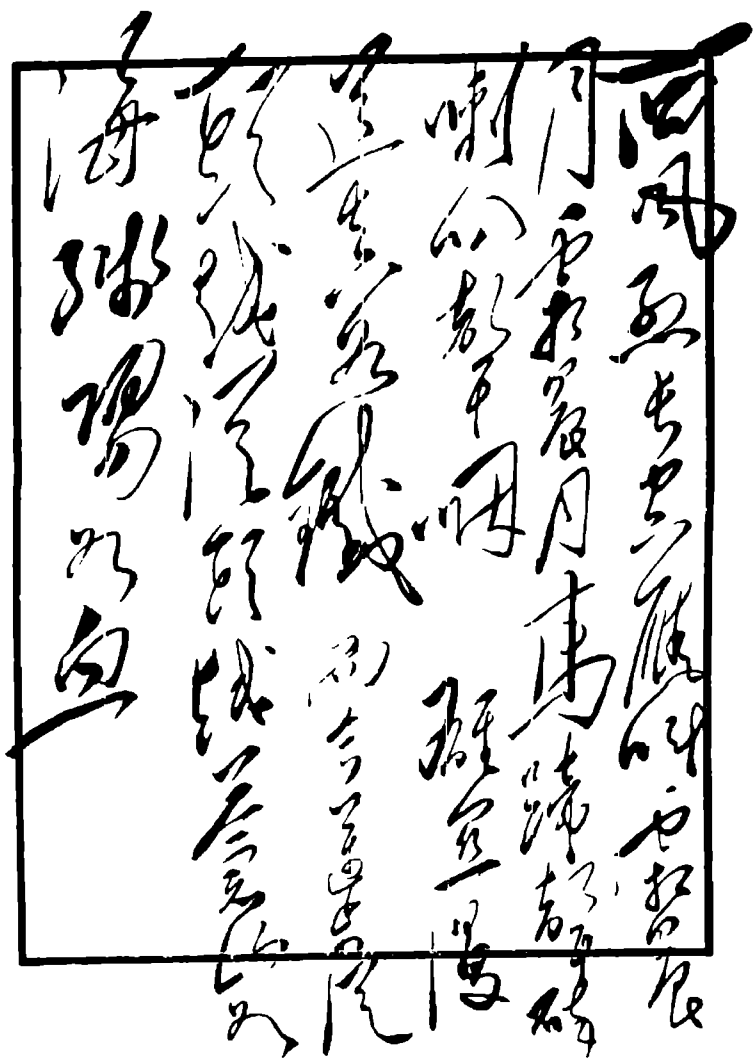 西風烈長空雁叫霜晨
月霜晨月馬蹄聲碎
喇叭聲咽雄關漫
道真如鐵而今邁步從
頭越從頭越蒼山如
海殘陽如血